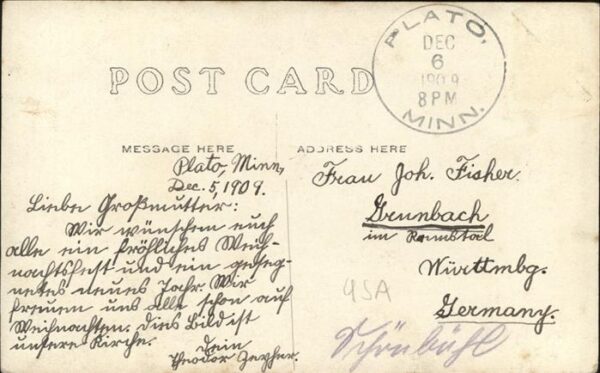 POST CARD
PLATO,
DEC
6
1909
8 PM
MINN.
MESSAGE HERE
Plato, Minn,
Dec. 5, 1909.
Liebe Großmutter:
Wir wünschen euch
alle ein fröhliches Weih-
nachtsfest und ein geseg-
netes neues Jahr. Wir
freuen uns alle schon auf
Weihnachten. Dies Bild ist
unsere Kirche.
Dein
Theodor Zeyher.
ADDRESS HERE
Frau Joh. Fisher.
Grunbach
im Remstal
Württmbg.
Germany.
USA
Schönbühl